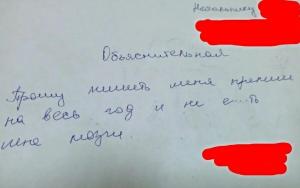 Начальнику
Объяснительная
Прошу лишить меня премии
на весь год и не е...ть
мне мозги.